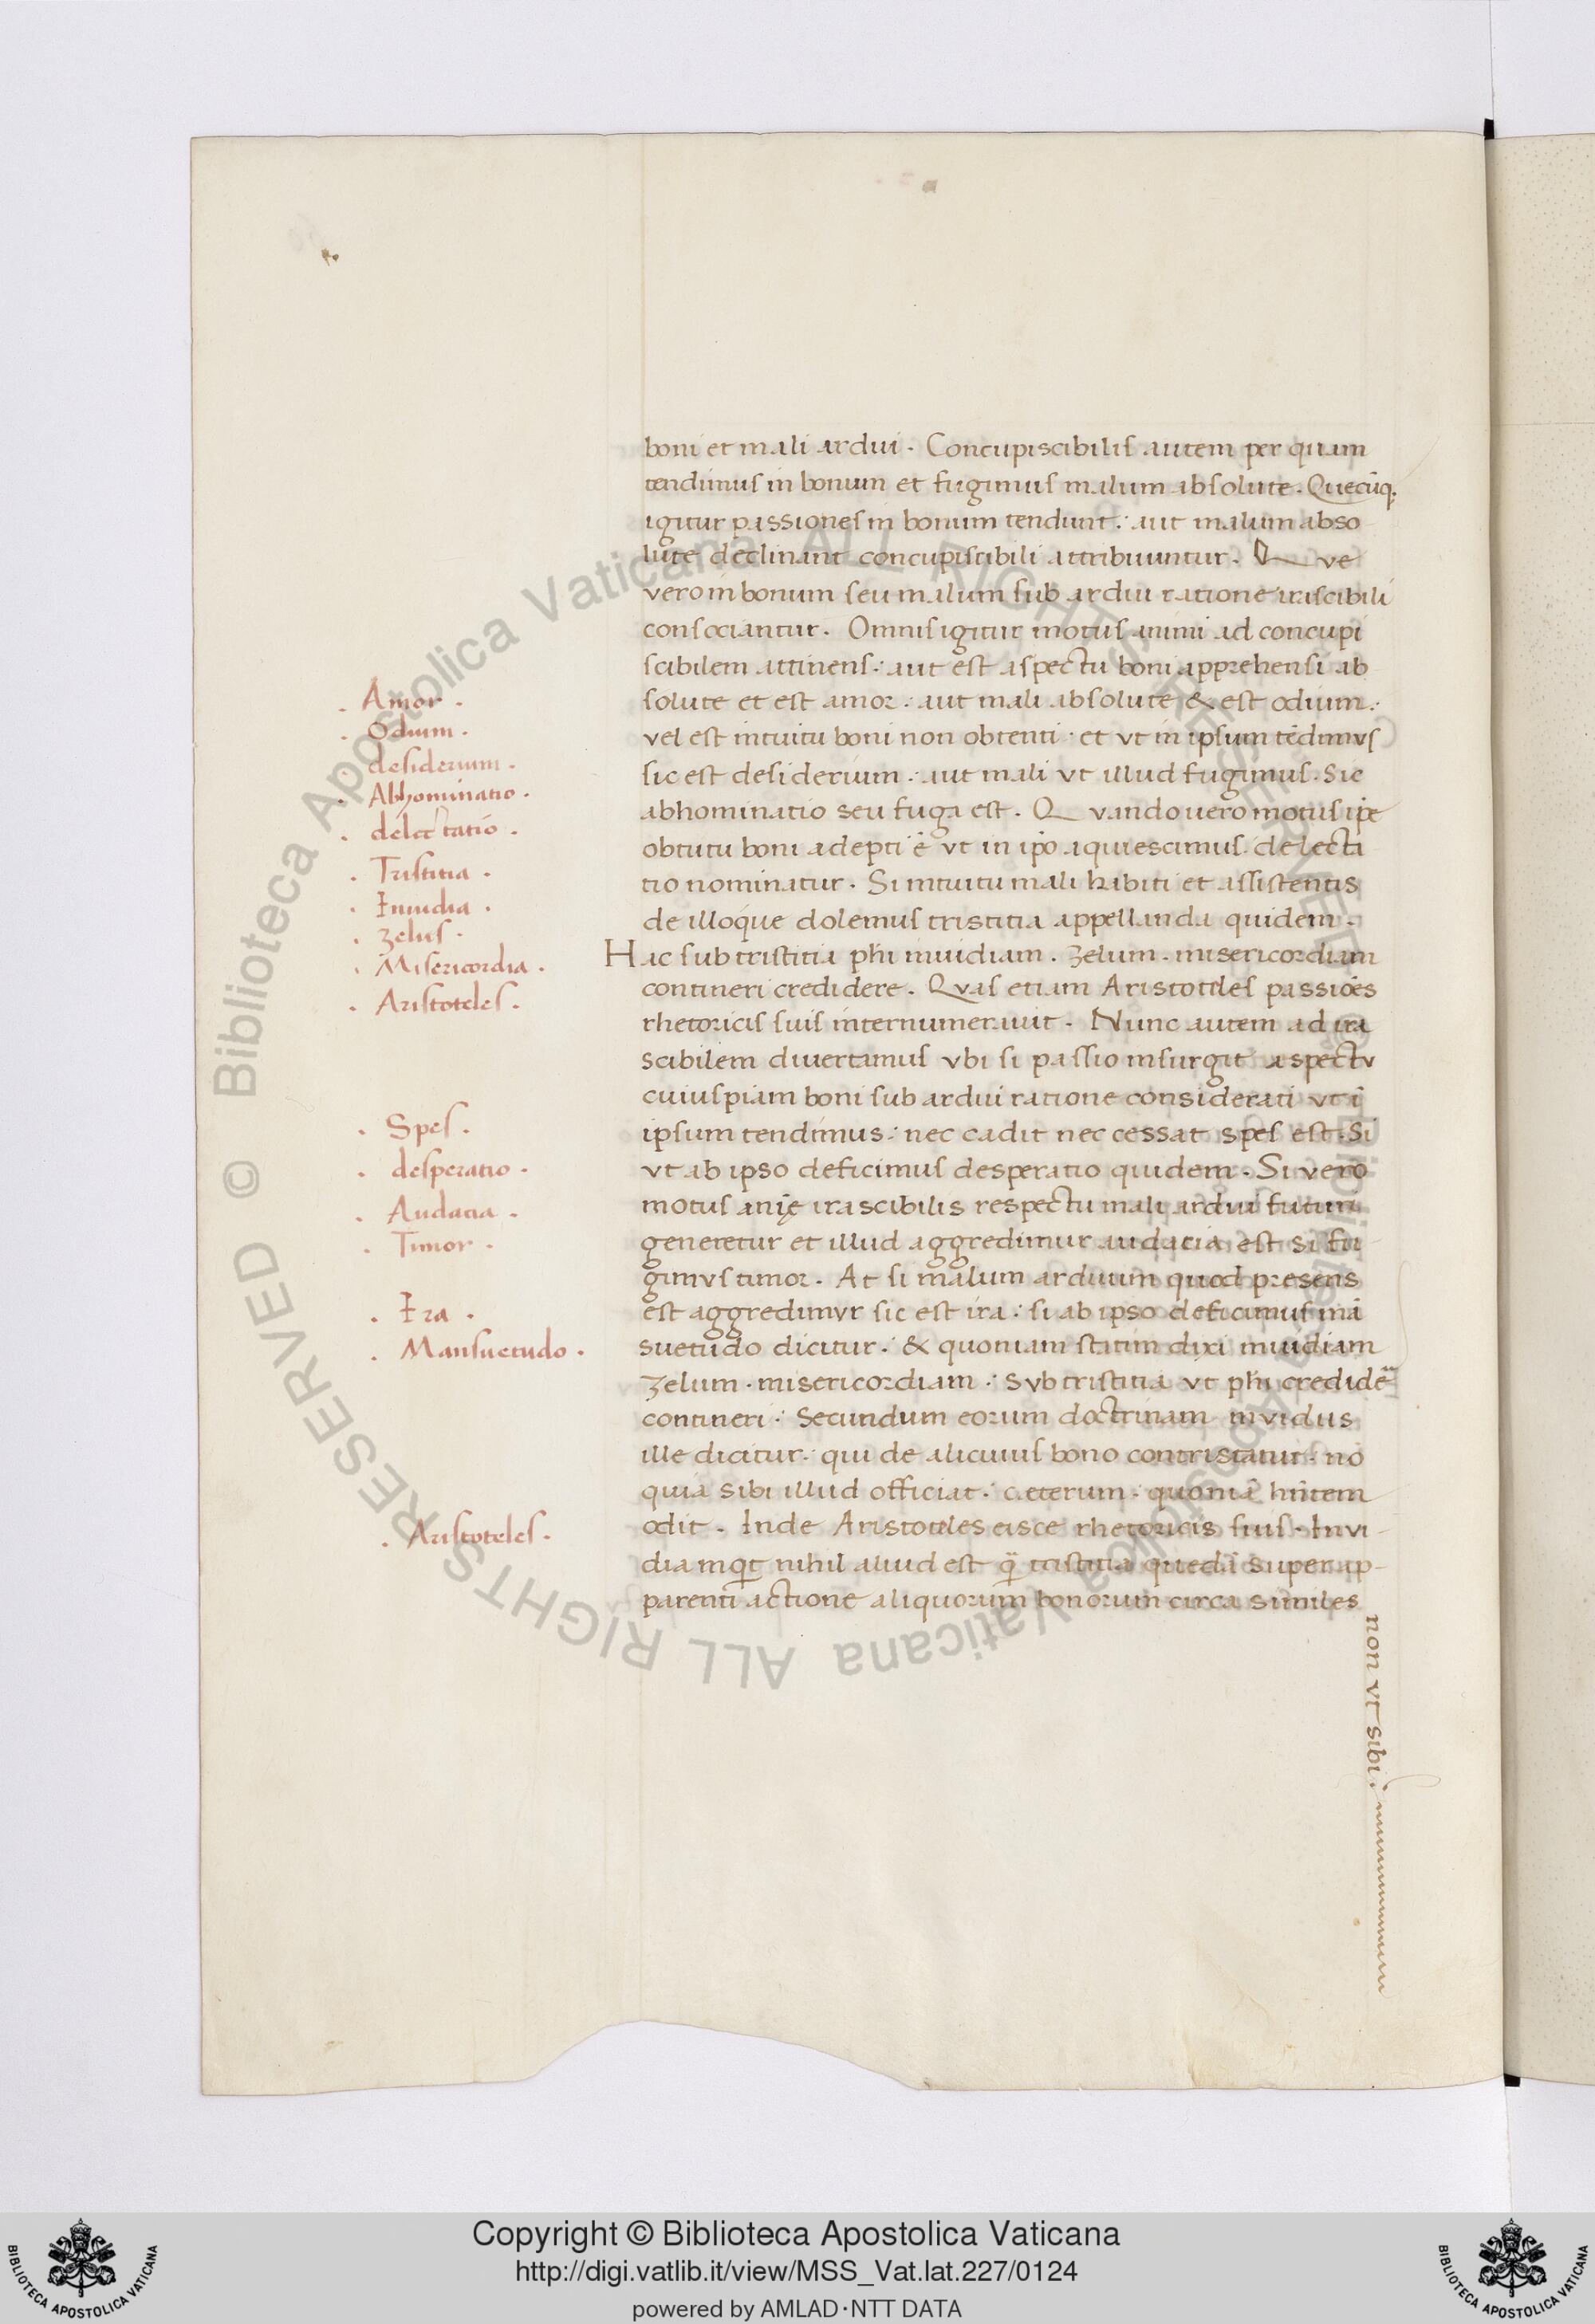 boni et mali ardui. Concupiscibilis autem per quam
tendimus in bonum et fugimus malum absolute. Quecūq;
igitur passiones in bonum tendunt: aut malum abso
lute declinant concupiscibili attribuuntur. Q ve
vero in bonum seu malum sub ardui ratione irascibili
consociantur. Omnis igitur motus animi ad concupi
scibilem attinens: aut est aspectu boni apprehensi ab
Amor.
solute et est amor: aut mali absolute & est odium:
Odium.
vel est intuitu boni non obtenti: et vt in ipsum tēdimvs
desiderium.
sic est desiderium: aut mali vt illud fugimus. Sic
Abhominatio.
abhominatio seu fuga est. Q vando uero motus ip̄e
delectatio.
obtutu boni adepti ē vt in ip̄o aquiescimus. delecta
Tristitia.
tio nominatur. Si intuitu mali habiti et assistentis
Inuidia.
de illoque dolemus tristitia appellanda quidem.
zelus.
Misericordia.
Hac sub tristitia phi inuidiam. zelum. misericordiam
Aristoteles.
contineri credidere. Qvas etiam Aristoteles passiōes
rhetoricis suis internumerauit. Nunc autem ad ira
scibilem divertamus vbi si passio insurgit aspectv
cuiuspiam boni sub ardui ratione considerati vt ī
Spes.
ipsum tendimus: nec cadit nec cessat spes est. Si
desperatio.
vt ab ipso deficimus desperatio quidem. Si vero
Audacia.
motus anię irascibilis respectu mali ardui futuri
Timor.
generetur et illud aggredimur audacia est si fu
gimvs timor. At si malum arduum quod presens
Ira.
est aggredimvr sic est ira: si ab ipso deficimus mā
Mansuetudo.
suetudo dicitur: & quoniam statim dixi inuidiam
zelum. misericordiam: Svb tristitia vt phi credidē
contineri: Secundum eorum doctrinam invidus
ille dicitur: qui de alicuius bono contristatur. nō
quia sibi illud officiat: cæterum. quoniā hn̄tem
Aristoteles.
odit. Inde Aristoteles eisce rhetoricis suis. Invi
dia inqt nihil aliud est q̄ tristitia quedā super ap
parenti actione aliquorum bonorum circa similes
non vt sibi:
© Biblioteca Apostolica Vaticana ALL RIGHTS RESERVED
© Biblioteca Apostolica Vaticana ALL RIGHTS RESERVED
Copyright © Biblioteca Apostolica Vaticana
http://digi.vatlib.it/view/MSS_Vat.lat.227/0124
powered by AMLAD·NTT DATA
BIBLIOTECA APOSTOLICA VATICANA
BIBLIOTECA APOSTOLICA VATICANA